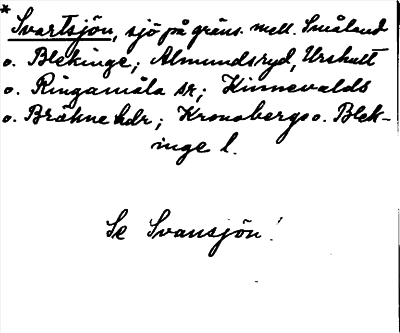 * Svartsjön, sjö på gräns. mell. Småland
o. Blekinge; Almundsryd, Urshult
o. Ringamåla sr; Kinnevalds
o. Bräkne hdr; Kronobergs o. Blek-
inge l.
Se Svansjön!